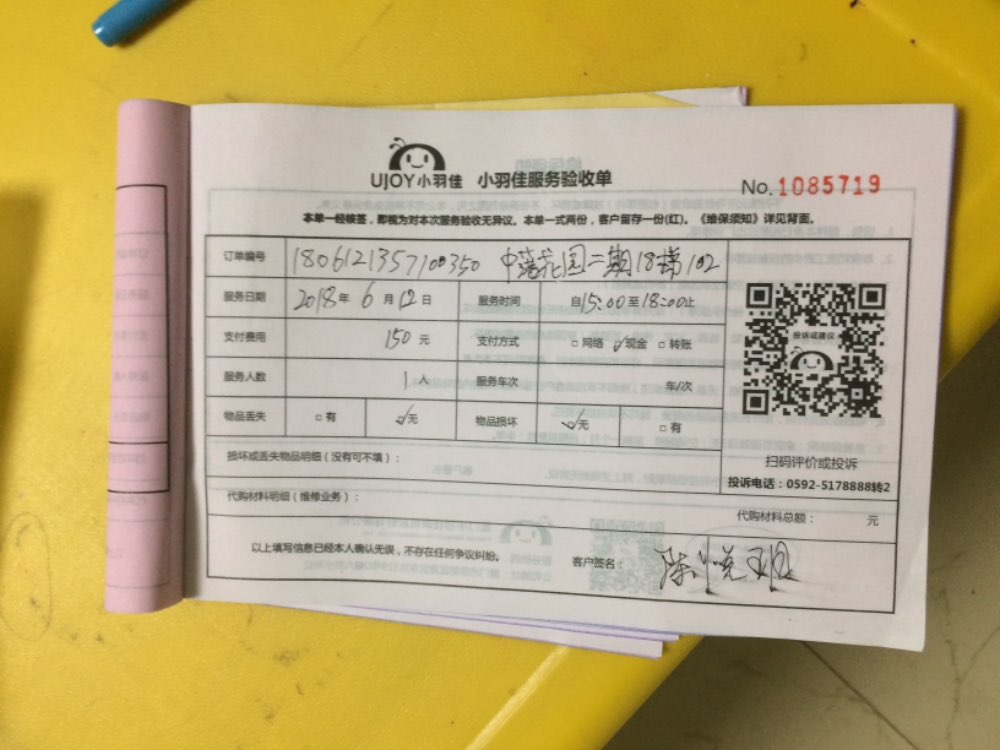 UJOY小羽佳 小羽佳服务验收单
No. 1085719
本单一经核签，即视为对本次服务验收无异议。本单一式两份，客户留存一份(红)。《维保须知》详见背面。
订单编号 1806121357100350 花园二期18梯102
服务日期 2018年6月12日 服务时间 自15:00至18:00止
支付费用 150元 支付方式 □网络 ☑现金 □转账
服务人数 1人 服务车次 车/次
物品丢失 □有 ☑无 物品损坏 ☑无 □有
投诉或建议
扫码评价或投诉
投诉电话：0592-5178888转2
损坏或丢失物品明细（没有可不填）：
代购材料明细（维修业务）：
代购材料总额： 元
以上填写信息已经本人确认无误，不存在任何争议纠纷。 客户签名：